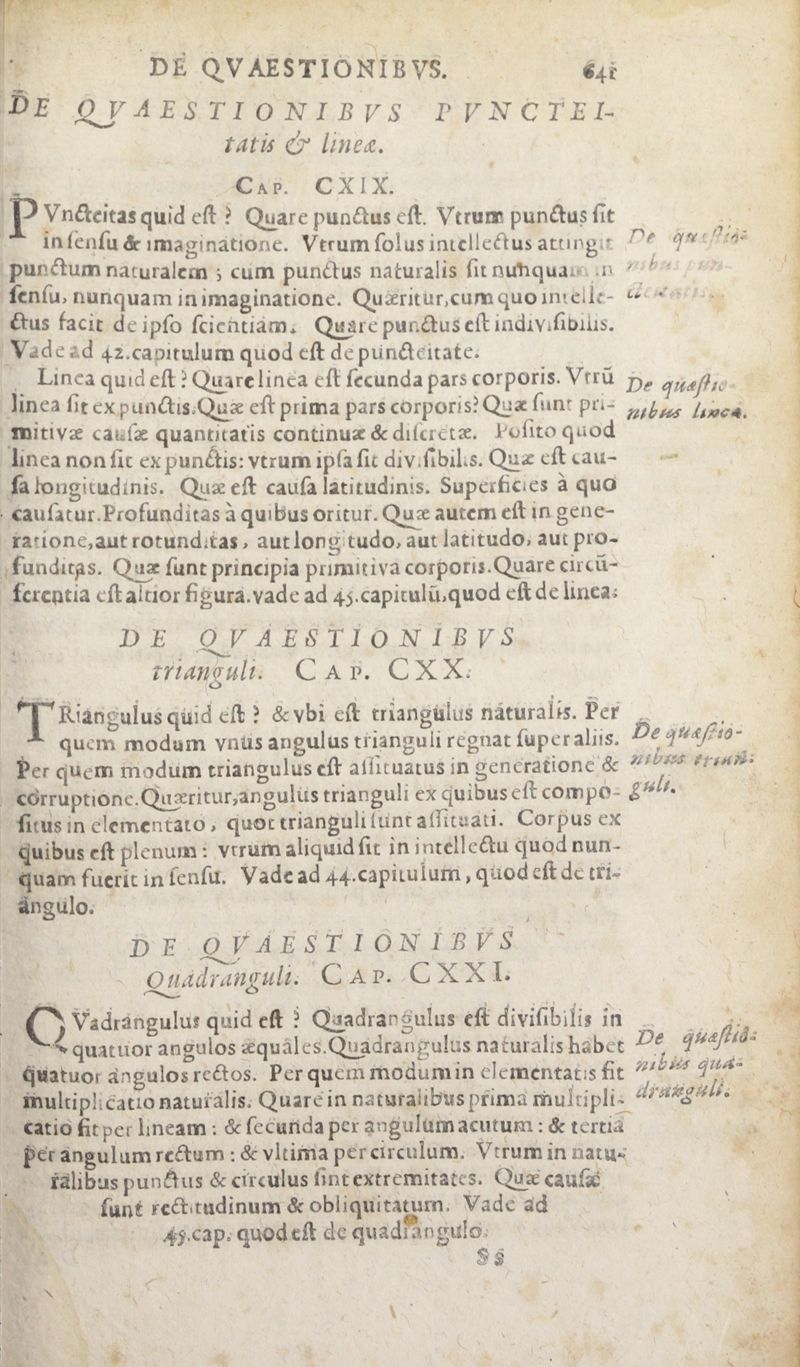 DE QVAESTIONIBVS. 641
DE QVAESTIONIBVS PVNCTEI-
tatis & lineæ.
CAP. CXIX.
PVnƈteitas quid eſt? Quare punƈtus eſt. Vtrum punƈtus ſit
in ſenſu & imaginatione. Vtrum ſolus intelleƈtus attingit
punƈtum naturalem; cum punƈtus naturalis ſit nunquam in
ſenſu, nunquam in imaginatione. Quæritur, cum quo intelle-
ƈtus facit de ipſo ſcientiam. Quare punƈtus eſt indiviſibilis.
Vade ad 42. capitulum quod eſt de punƈteitate.
De quæſtio-
nibus
Linea quid eſt? Quare linea eſt ſecunda pars corporis. Vtrū
linea ſit ex punƈtis. Quæ eſt prima pars corporis? Quæ ſunt pri-
mitivæ cauſæ quantitatis continuæ & diſcretæ. Poſito quod
linea non ſit ex punƈtis: vtrum ipſa ſit diviſibilis. Quæ eſt cau-
ſa longitudinis. Quæ eſt cauſa latitudinis. Superficies à quo
cauſatur. Profunditas à quibus oritur. Quæ autem eſt in gene-
ratione, aut rotunditas, aut longitudo, aut latitudo, aut pro-
funditas. Quæ ſunt principia primitiva corporis. Quare circū-
ferentia eſt altior figura. vade ad 43. capitulū, quod eſt de linea.
De quæſtio-
nibus lineæ.
DE QVAESTIONIBVS
trianguli. CAP. CXX.
TRiangulus quid eſt? & vbi eſt triangulus naturalis. Per
quem modum vnus angulus trianguli regnat ſuper aliis.
Per quem modum triangulus eſt aſſituatus in generatione &
corruptione. Quæritur, angulus trianguli ex quibus eſt compo-
ſitus in elementato, quot trianguli ſunt aſſituati. Corpus ex
quibus eſt plenum: vtrum aliquid ſit in intelleƈtu quod nun-
quam fuerit in ſenſu. Vade ad 44. capitulum, quod eſt de tri-
angulo.
De quæſtio-
nibus trian-
guli.
DE QVAESTIONIBVS
Quadranguli. CAP. CXXI.
QVadrangulus quid eſt? Quadrangulus eſt diviſibilis in
quatuor angulos æquales. Quadrangulus naturalis habet
quatuor angulos reƈtos. Per quem modum in elementatis fit
multiplicatio naturalis. Quare in naturalibus prima multipli-
catio fit per lineam: & ſecunda per angulum acutum: & tertia
per angulum reƈtum: & vltima per circulum. Vtrum in natu-
ralibus punƈtus & circulus ſint extremitates. Quæ cauſæ
ſunt reƈtitudinum & obliquitatum. Vade ad
45. cap. quod eſt de quadrangulo.
De quæſtio-
nibus qua-
dranguli.
Sſ